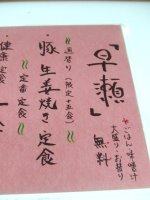 「早瀬」
ごはん・味噌汁
大盛り・お替り
無料
週替り(限定十五食)
・豚生姜焼き定食
定番定食